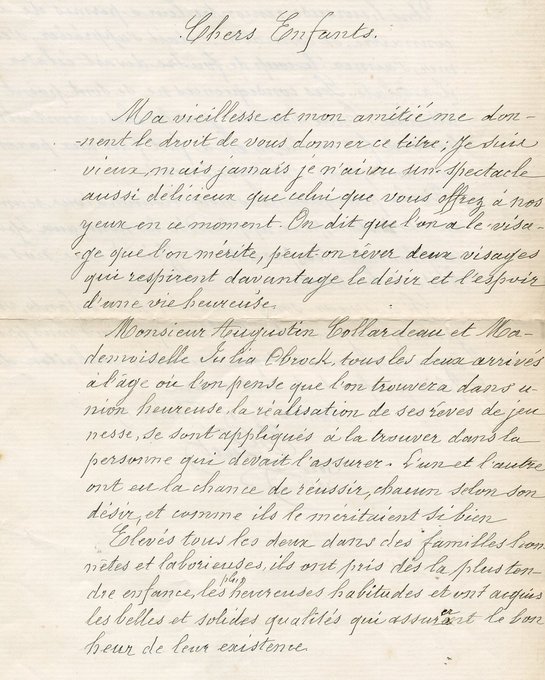 Chers Enfants.
Ma vieillesse et mon amitié me don-
-nent le droit de vous donner ce titre; Je suis
vieux, mais jamais je n'ai vu un spectacle
aussi délicieux que celui que vous offrez à nos
yeux en ce moment. On dit que l'on a le visa-
-ge que l'on mérite, peut-on rêver deux visages
qui respirent davantage le désir et l'espoir
d'une vie heureuse.
Monsieur Augustin Collardeau et Ma-
demoiselle Julia Obrock, tous les deux arrivés
à l'âge où l'on pense que l'on trouvera dans u-
nion heureuse, la réalisation de ses rêves de jeu
nesse, se sont appliqués à la trouver dans la
personne qui devait l'assurer. L'un et l'autre
ont eu la chance de réussir, chacun selon son
désir, et comme ils le méritaient si bien
Elevés tous les deux dans des familles hon
nêtes et laborieuses, ils ont pris dès la plus ten-
dre enfance, les plus heureuses habitudes et ont acquis
les belles et solides qualités qui assurèrent le bon
heur de leur existence.